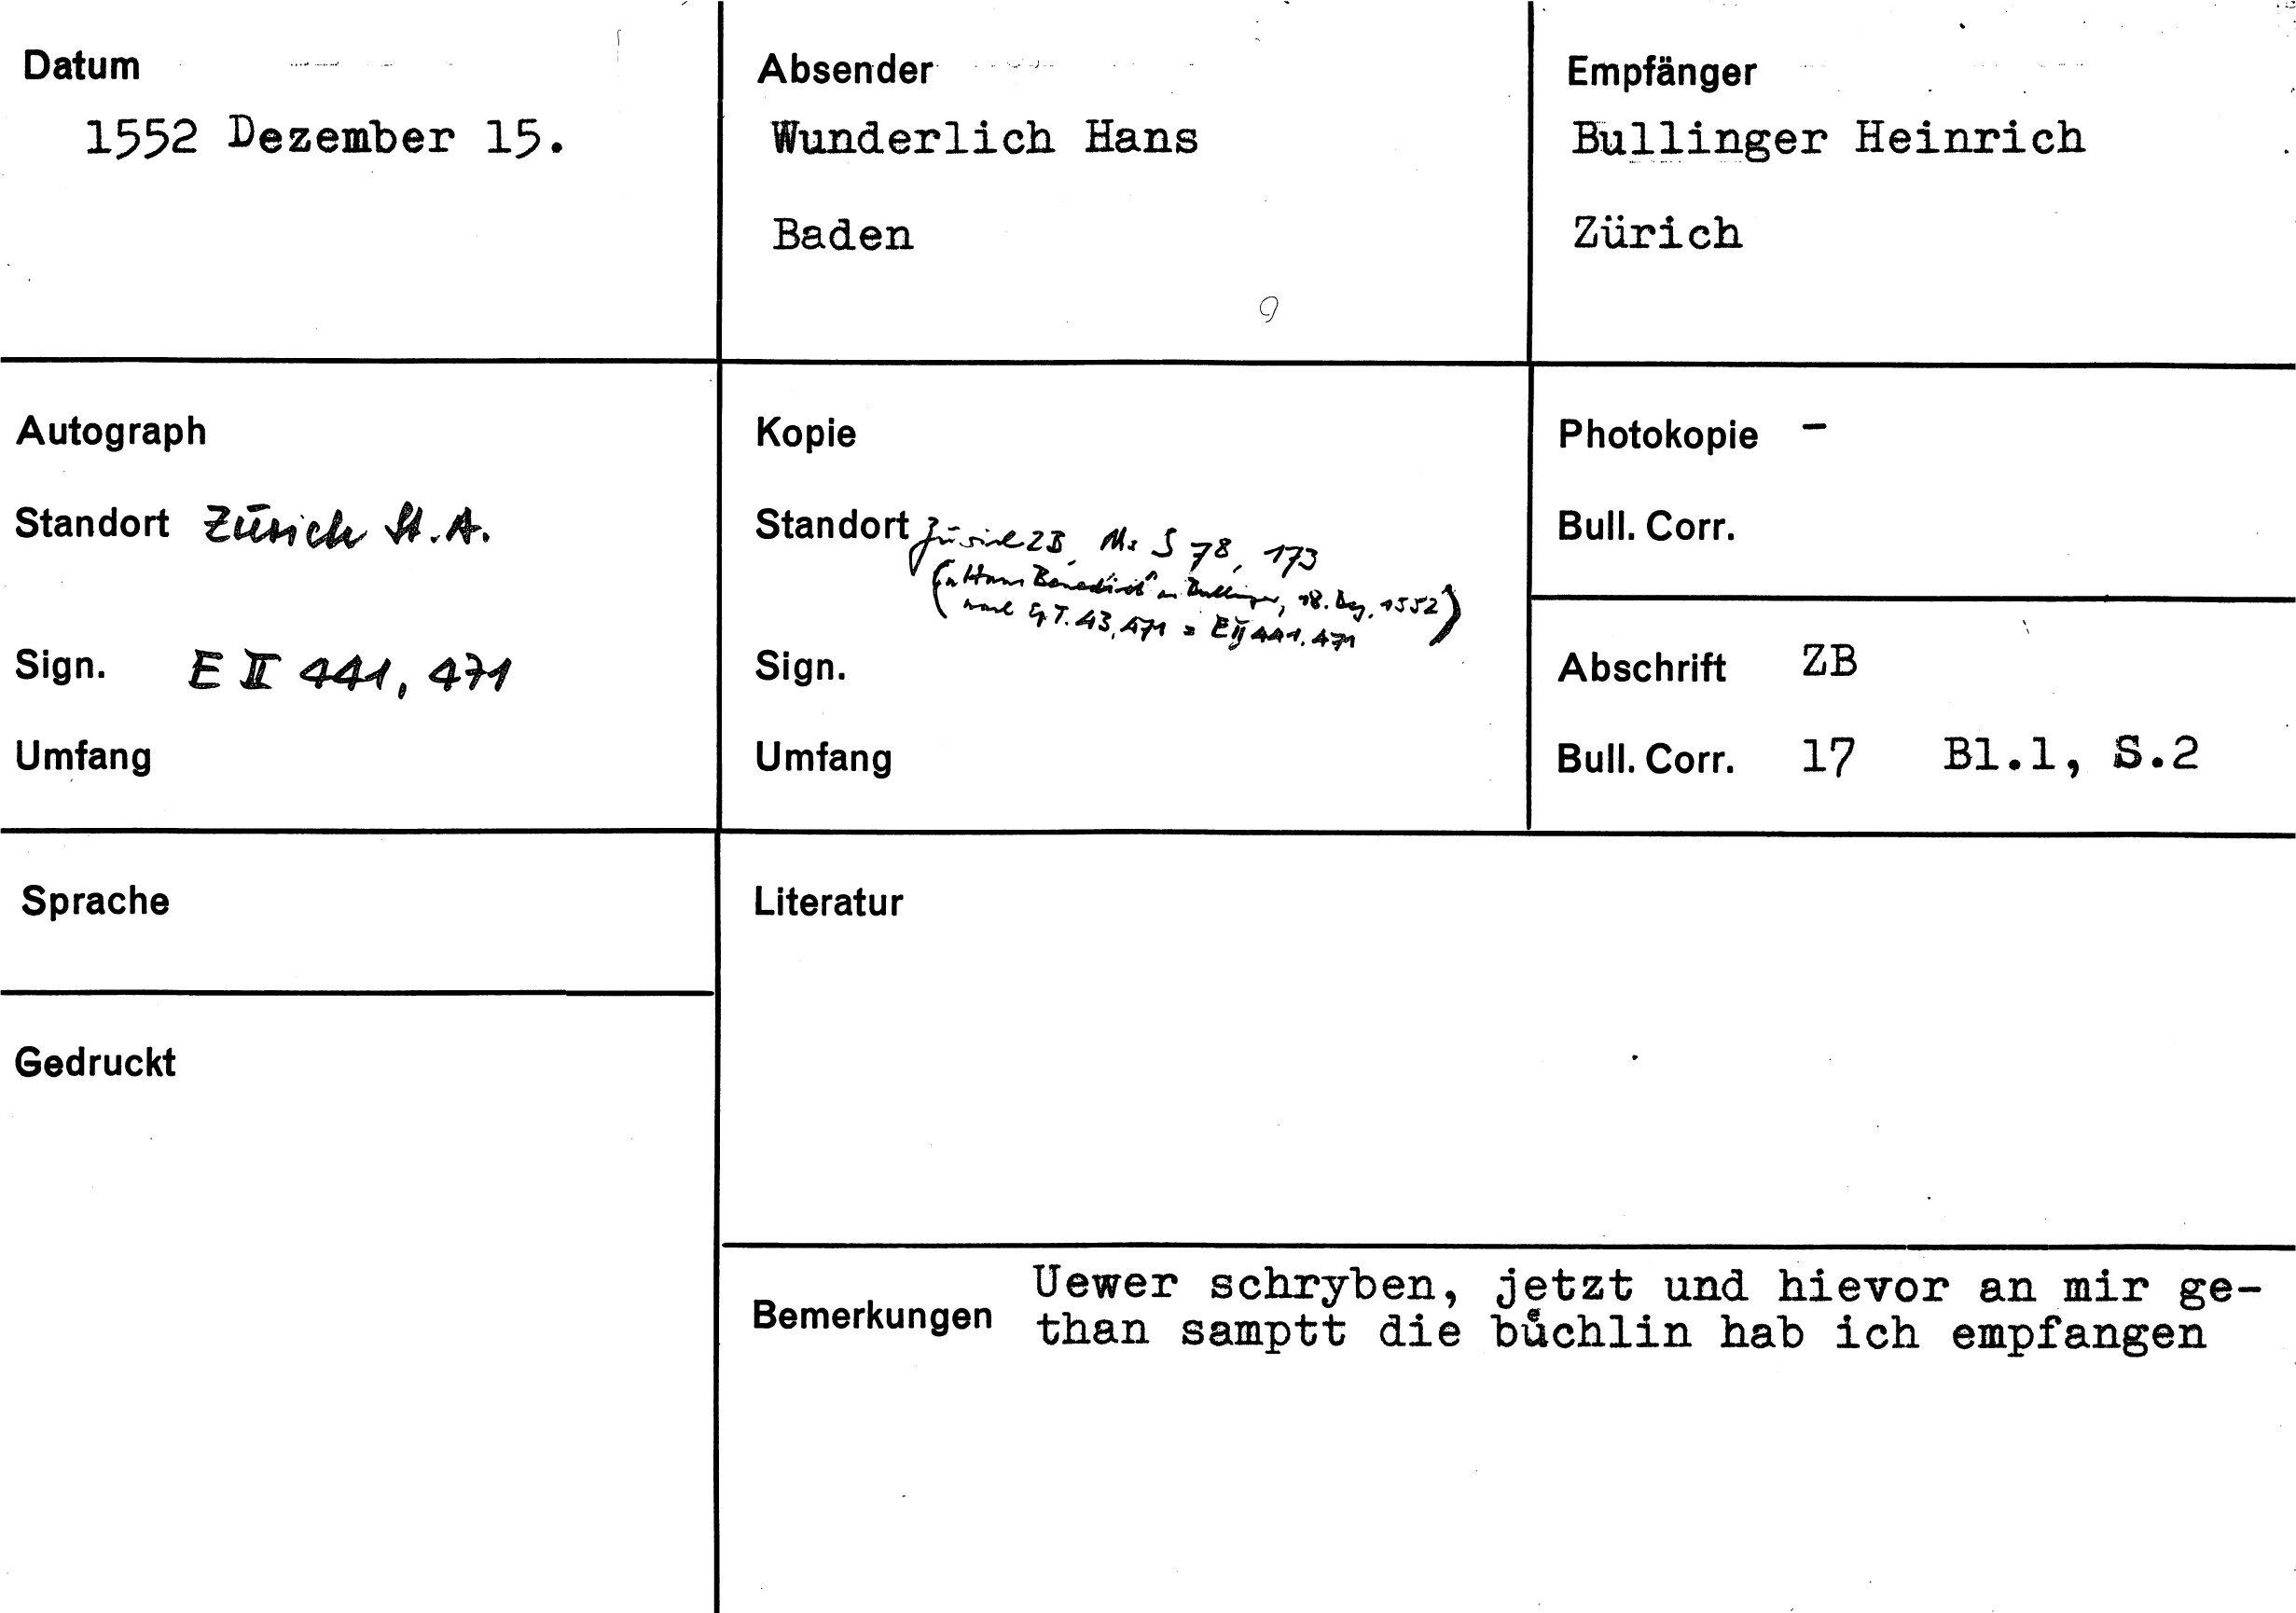 Datum
1552 Dezember 15.
Absender
Wunderlich Hans
Baden
Empfänger
Bullinger Heinrich
Zürich
Autograph
Standort Zürich St.A.
Sign. E II 441, 471
Umfang
Kopie
Standort Zürich ZB, Ms S 78, 173
("Hans Benedict" an Bullinger, 18. Dez. 1552
43, 471 = E II 441, 471)
Sign.
Umfang
Photokopie -
Bull. Corr.
Abschrift ZB
Bull. Corr. 17 Bl.1, S.2
Sprache
Gedruckt
Literatur
Bemerkungen
Uewer schryben, jetzt und hievor an mir ge-
than samptt die bůchlin hab ich empfangen